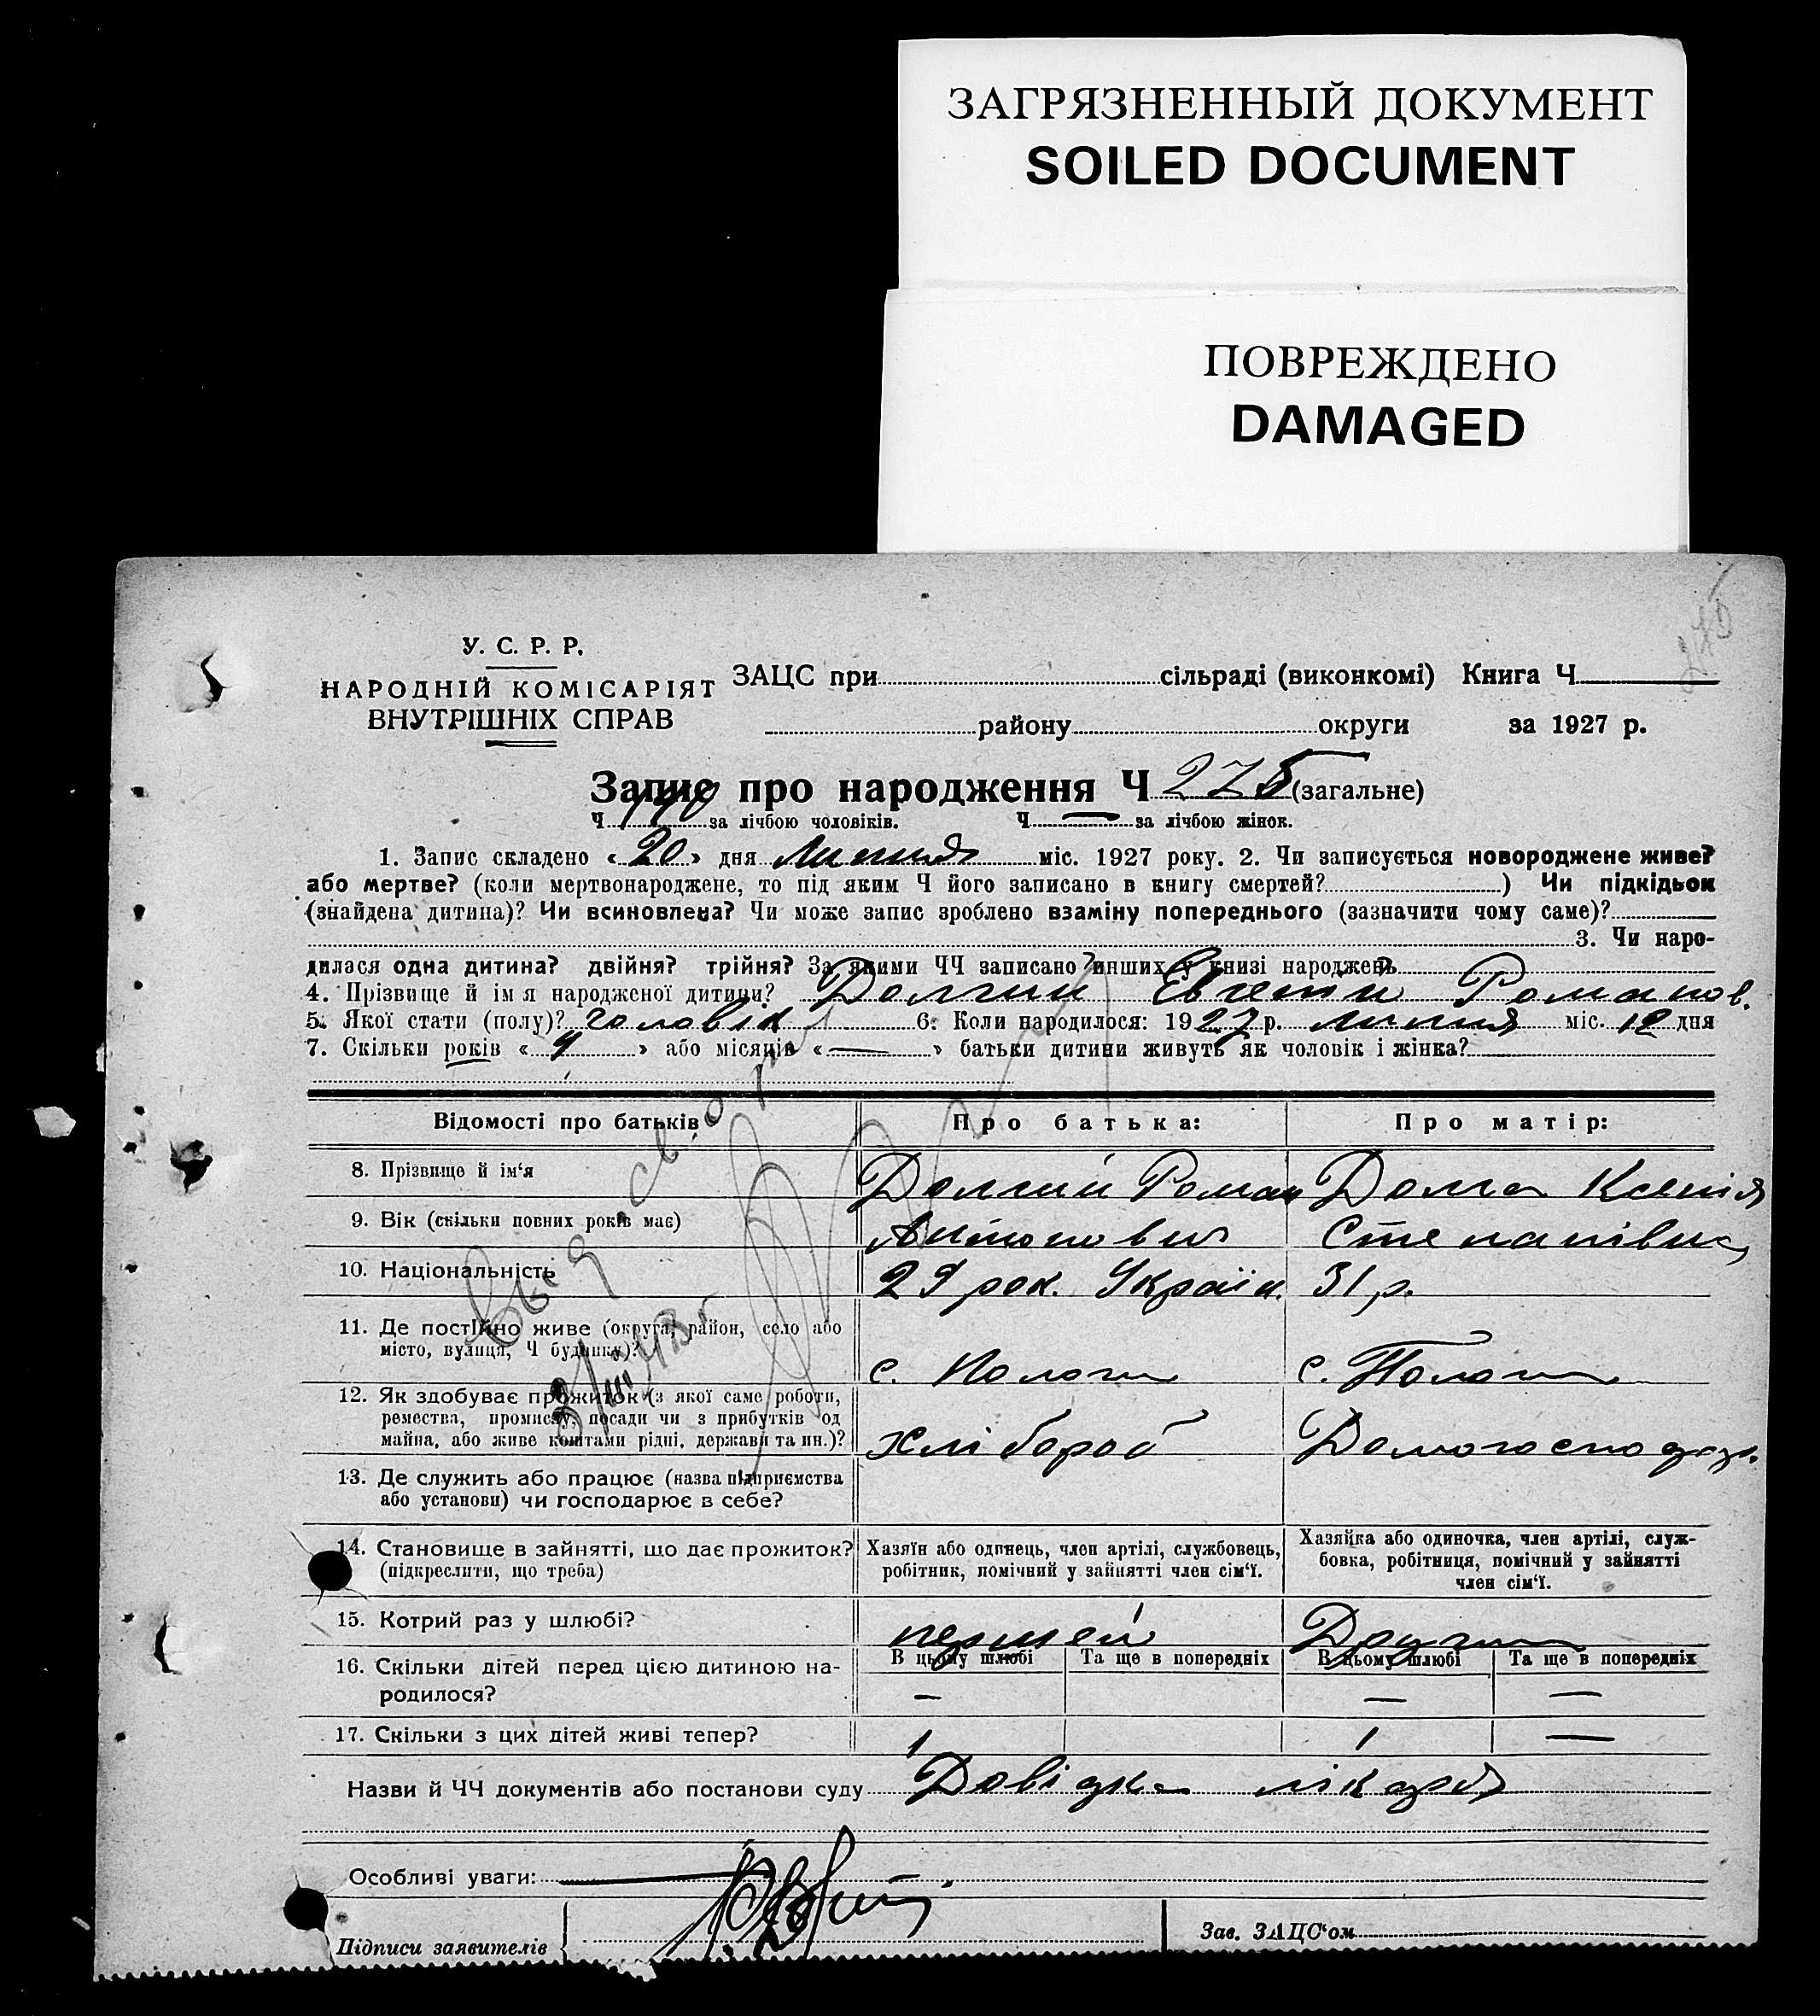 ЗАГРЯЗНЕННЫЙ ДОКУМЕНТ
SOILED DOCUMENT
ПОВРЕЖДЕНО
DAMAGED
У. С. Р. Р.
НАРОДНІЙ КОМІСАРІЯТ
ВНУТРІШНІХ СПРАВ
ЗАЦС при сільраді (виконкомі) Книга Ч
району округи за 1927 р.
Запис про народження Ч 275 (загальне)
Ч 140 за лічбою чоловіків. Ч — за лічбою жінок.
1. Запис складено « 20 » дня Липня міс. 1927 року. 2. Чи записується новороджене живе?
або мертве? (коли мертвонароджене, то під яким Ч його записано в книгу смертей? ) Чи підкідьок
(знайдена дитина)? Чи всиновлена? Чи може запис зроблено взаміну попереднього (зазначити чому саме)?
3. Чи наро-
дилася одна дитина? двійня? трійня? За якими ЧЧ записано инших у книзі народжень
4. Прізвище й ім я народженої дитини? Долгий Евгений Романов.
5. Якої стати (полу)? чоловік 6. Коли народилося: 1927 р. липня міс. 12 дня
7. Скільки років « » або місяців « — » батьки дитини живуть як чоловік і жінка?
Відомості про батьків Про батька: Про матір:
8. Прізвище й ім‘я Долгий Роман Долга Ксенія
9. Вік (скільки повних років має) Антонович Степанівна
10. Національність 29 рок. Україн. 31 р.
11. Де постійно живе (округа, район, село або
місто, вулиця, Ч будинку)? с. Пологи с. Пологи
12. Як здобуває прожиток (з якої саме роботи,
ремества, промислу, посади чи з прибутків од
майна, або живе коштами рідні, держави та ин.)? хлібороб Домогосподар.
13. Де служить або працює (назва підприємства
або установи) чи господарює в себе?
14. Становище в зайнятті, що дає прожиток?
(підкреслити, що треба)
Хазяїн або одинець, член артілі, службовець,
робітник, помічний у зайнятті член сім‘ї.
Хазяйка або одиночка, член артілі, служ-
бовка, робітниця, помічний у зайнятті
член сім‘ї.
15. Котрий раз у шлюбі? перший Другий
16. Скільки дітей перед цією дитиною на-
родилося?
В цьому шлюбі Та ще в попередніх В цьому шлюбі Та ще в попередніх
— — —
17. Скільки з цих дітей живі тепер? 1 1 —
Назви й ЧЧ документів або постанови суду Довідка лікаря
Особливі уваги:
Підписи заявителів Зав. ЗАЦС‘ом